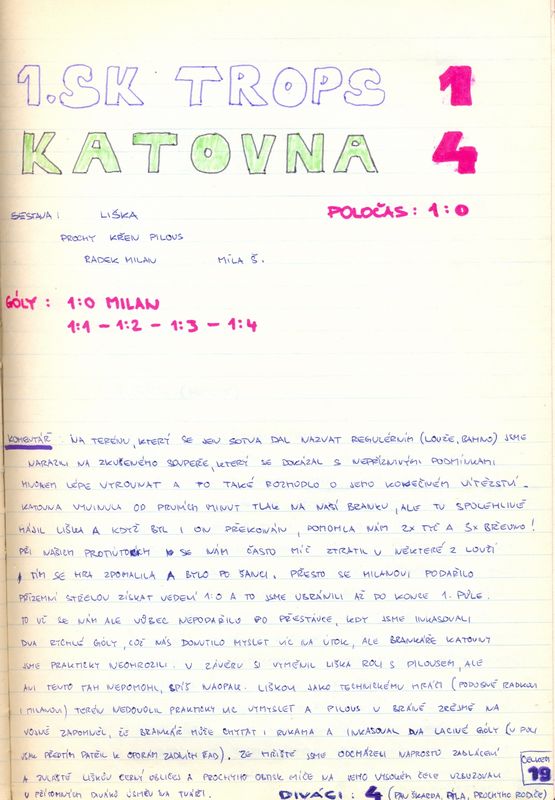 1.SK TROPS 1
KATOVNA 4
SESTAVA: LIŠKA
POLOČAS: 1:0
PROCHY KŘEN PILOUS
RADEK MILAN MÍLA Š.
GÓLY: 1:0 MILAN
1:1 - 1:2 - 1:3 - 1:4
KOMENTÁŘ: NA TERÉNU, KTERÝ SE JEN SOTVA DAL NAZVAT REGULÉRNÍM (LOUŽE, BAHNO) JSME
NARAZILI NA ZKUŠENÉHO SOUPEŘE, KTERÝ SE DOKÁZAL S NEPŘÍZNIVÝMI PODMÍNKAMI
MNOHEM LÉPE VYROVNAT A TO TAKÉ ROZHODLO O JEHO KONEČNÉM VÍTĚZSTVÍ.
KATOVNA VYVINULA OD PRVNÍCH MINUT TLAK NA NAŠÍ BRANKU, ALE TU SPOLEHLIVĚ
HÁJIL LIŠKA A KDYŽ BYL I ON PŘEKONÁN, POMOHLA NÁM 2X TYČ A 3X BŘEVNO!
PŘI NAŠICH PROTIÚTOCÍCH SE NÁM ČASTO MÍČ ZTRATIL V NĚKTERÉ Z LOUŽÍ
TÍM SE HRA ZPOMALILA A BYLO PO ŠANCI. PŘESTO SE MILANOVI PODAŘILO
PŘÍZEMNÍ STŘELOU ZÍSKAT VEDENÍ 1:0 A TO JSME UBRÁNILI AŽ DO KONCE 1. PŮLE.
TO UŽ SE NÁM ALE VŮBEC NEPODAŘILO PO PŘESTÁVCE, KDY JSME INKASOVALI
DVA RYCHLÉ GÓLY, COŽ NÁS DONUTILO MYSLET VÍC NA ÚTOK, ALE BRANKÁŘE KATOVNY
JSME PRAKTICKY NEOHROZILI. V ZÁVĚRU SI VYMĚNIL LIŠKA ROLI S PILOUSEM, ALE
ANI TENTO TAH NEPOMOHL, SPÍŠ NAOPAK. LIŠKOVI JAKO TECHNICKÉMU HRÁČI (PODOBNĚ RADKOVI
I MILANOVI) TERÉN NEDOVOLIL PRAKTICKY NIC VYMYSLET A PILOUS V BRÁNĚ ZŘEJMĚ NA
VOJNĚ ZAPOMNĚL, ŽE BRANKÁŘ MŮŽE CHYTAT I RUKAMA A INKASOVAL DVA LACINÉ GÓLY (V POLI
VŠAK PŘEDTÍM PATŘIL K OPORÁM ZADNÍCH ŘAD). ZE HŘIŠTĚ JSME ODCHÁZELI NAPROSTO ZABLÁCENÍ
A ZVLÁŠTĚ LIŠKŮV ČERNÝ OBLIČEJ A PROCHYHO OTISK MÍČE NA JEHO VYSOKÉM ČELE VZBUZOVALI
U PŘÍTOMNÝCH DIVÁKŮ ÚSMĚV NA TVÁŘI.
DIVÁCI: 4 (PAV ŠKARDA, PÍLA, PROCHYHO RODIČE)
CELKEM
19